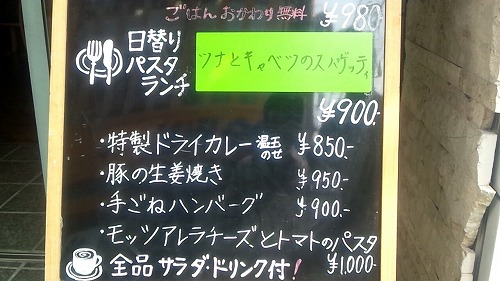 ごはんおかわり無料 ¥980-
日替り
パスタ
ランチ
ツナとキャベツのスパゲッティ
¥900-
・特製ドライカレー 温玉のせ ¥850.-
・豚の生姜焼き ¥950.-
・手ごねハンバーグ ¥900.-
・モッツアレラチーズとトマトのパスタ
¥1,000-
全品 サラダ・ドリンク付!